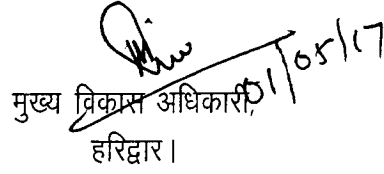 01/05/17
मुख्य विकास अधिकारी,
हरिद्वार।